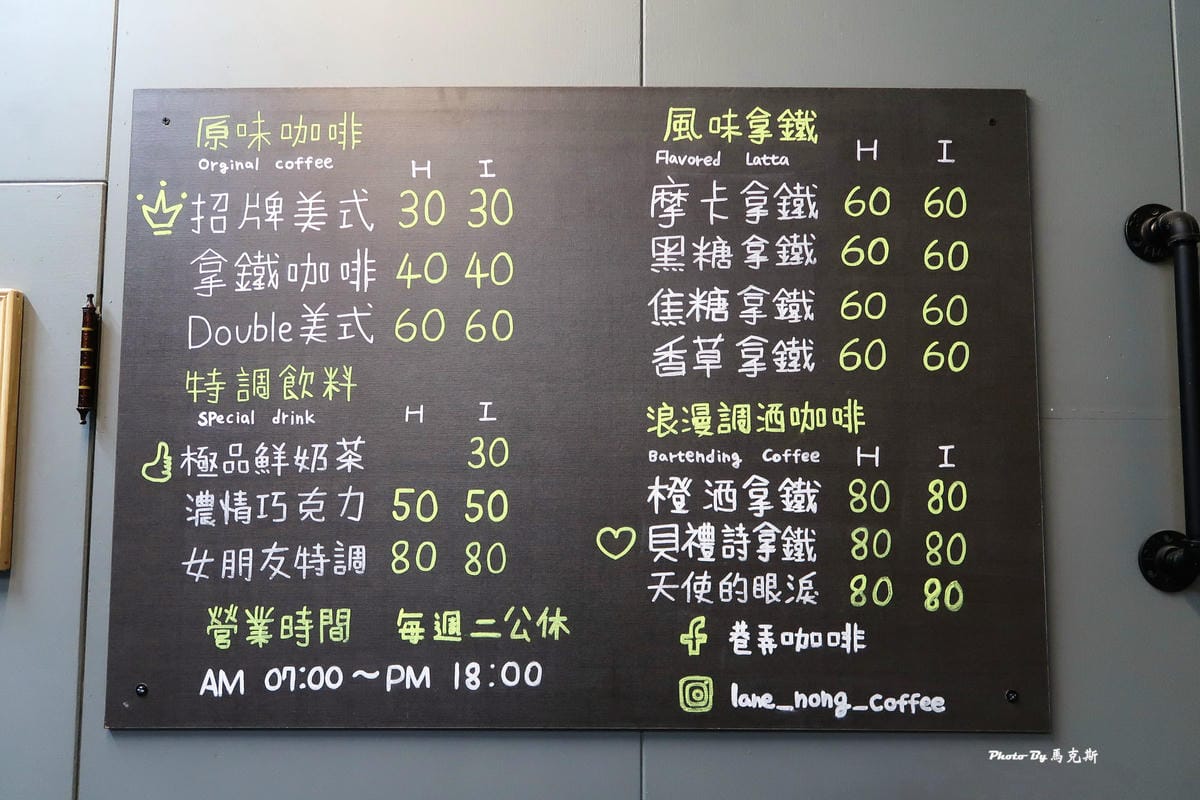 原味咖啡
Orginal coffee H I
招牌美式 30 30
拿鐵咖啡 40 40
Double美式 60 60
特調飲料
SPecial drink H I
極品鮮奶茶 30
濃情巧克力 50 50
女朋友特調 80 80
營業時間 每週二公休
AM 07:00～PM 18:00
風味拿鐵
Flavored Latta H I
摩卡拿鐵 60 60
黑糖拿鐵 60 60
焦糖拿鐵 60 60
香草拿鐵 60 60
浪漫調酒咖啡
Bartending Coffee H I
橙酒拿鐵 80 80
貝禮詩拿鐵 80 80
天使的眼淚 80 80
巷弄咖啡
lane_nong_coffee
Photo By 馬克斯